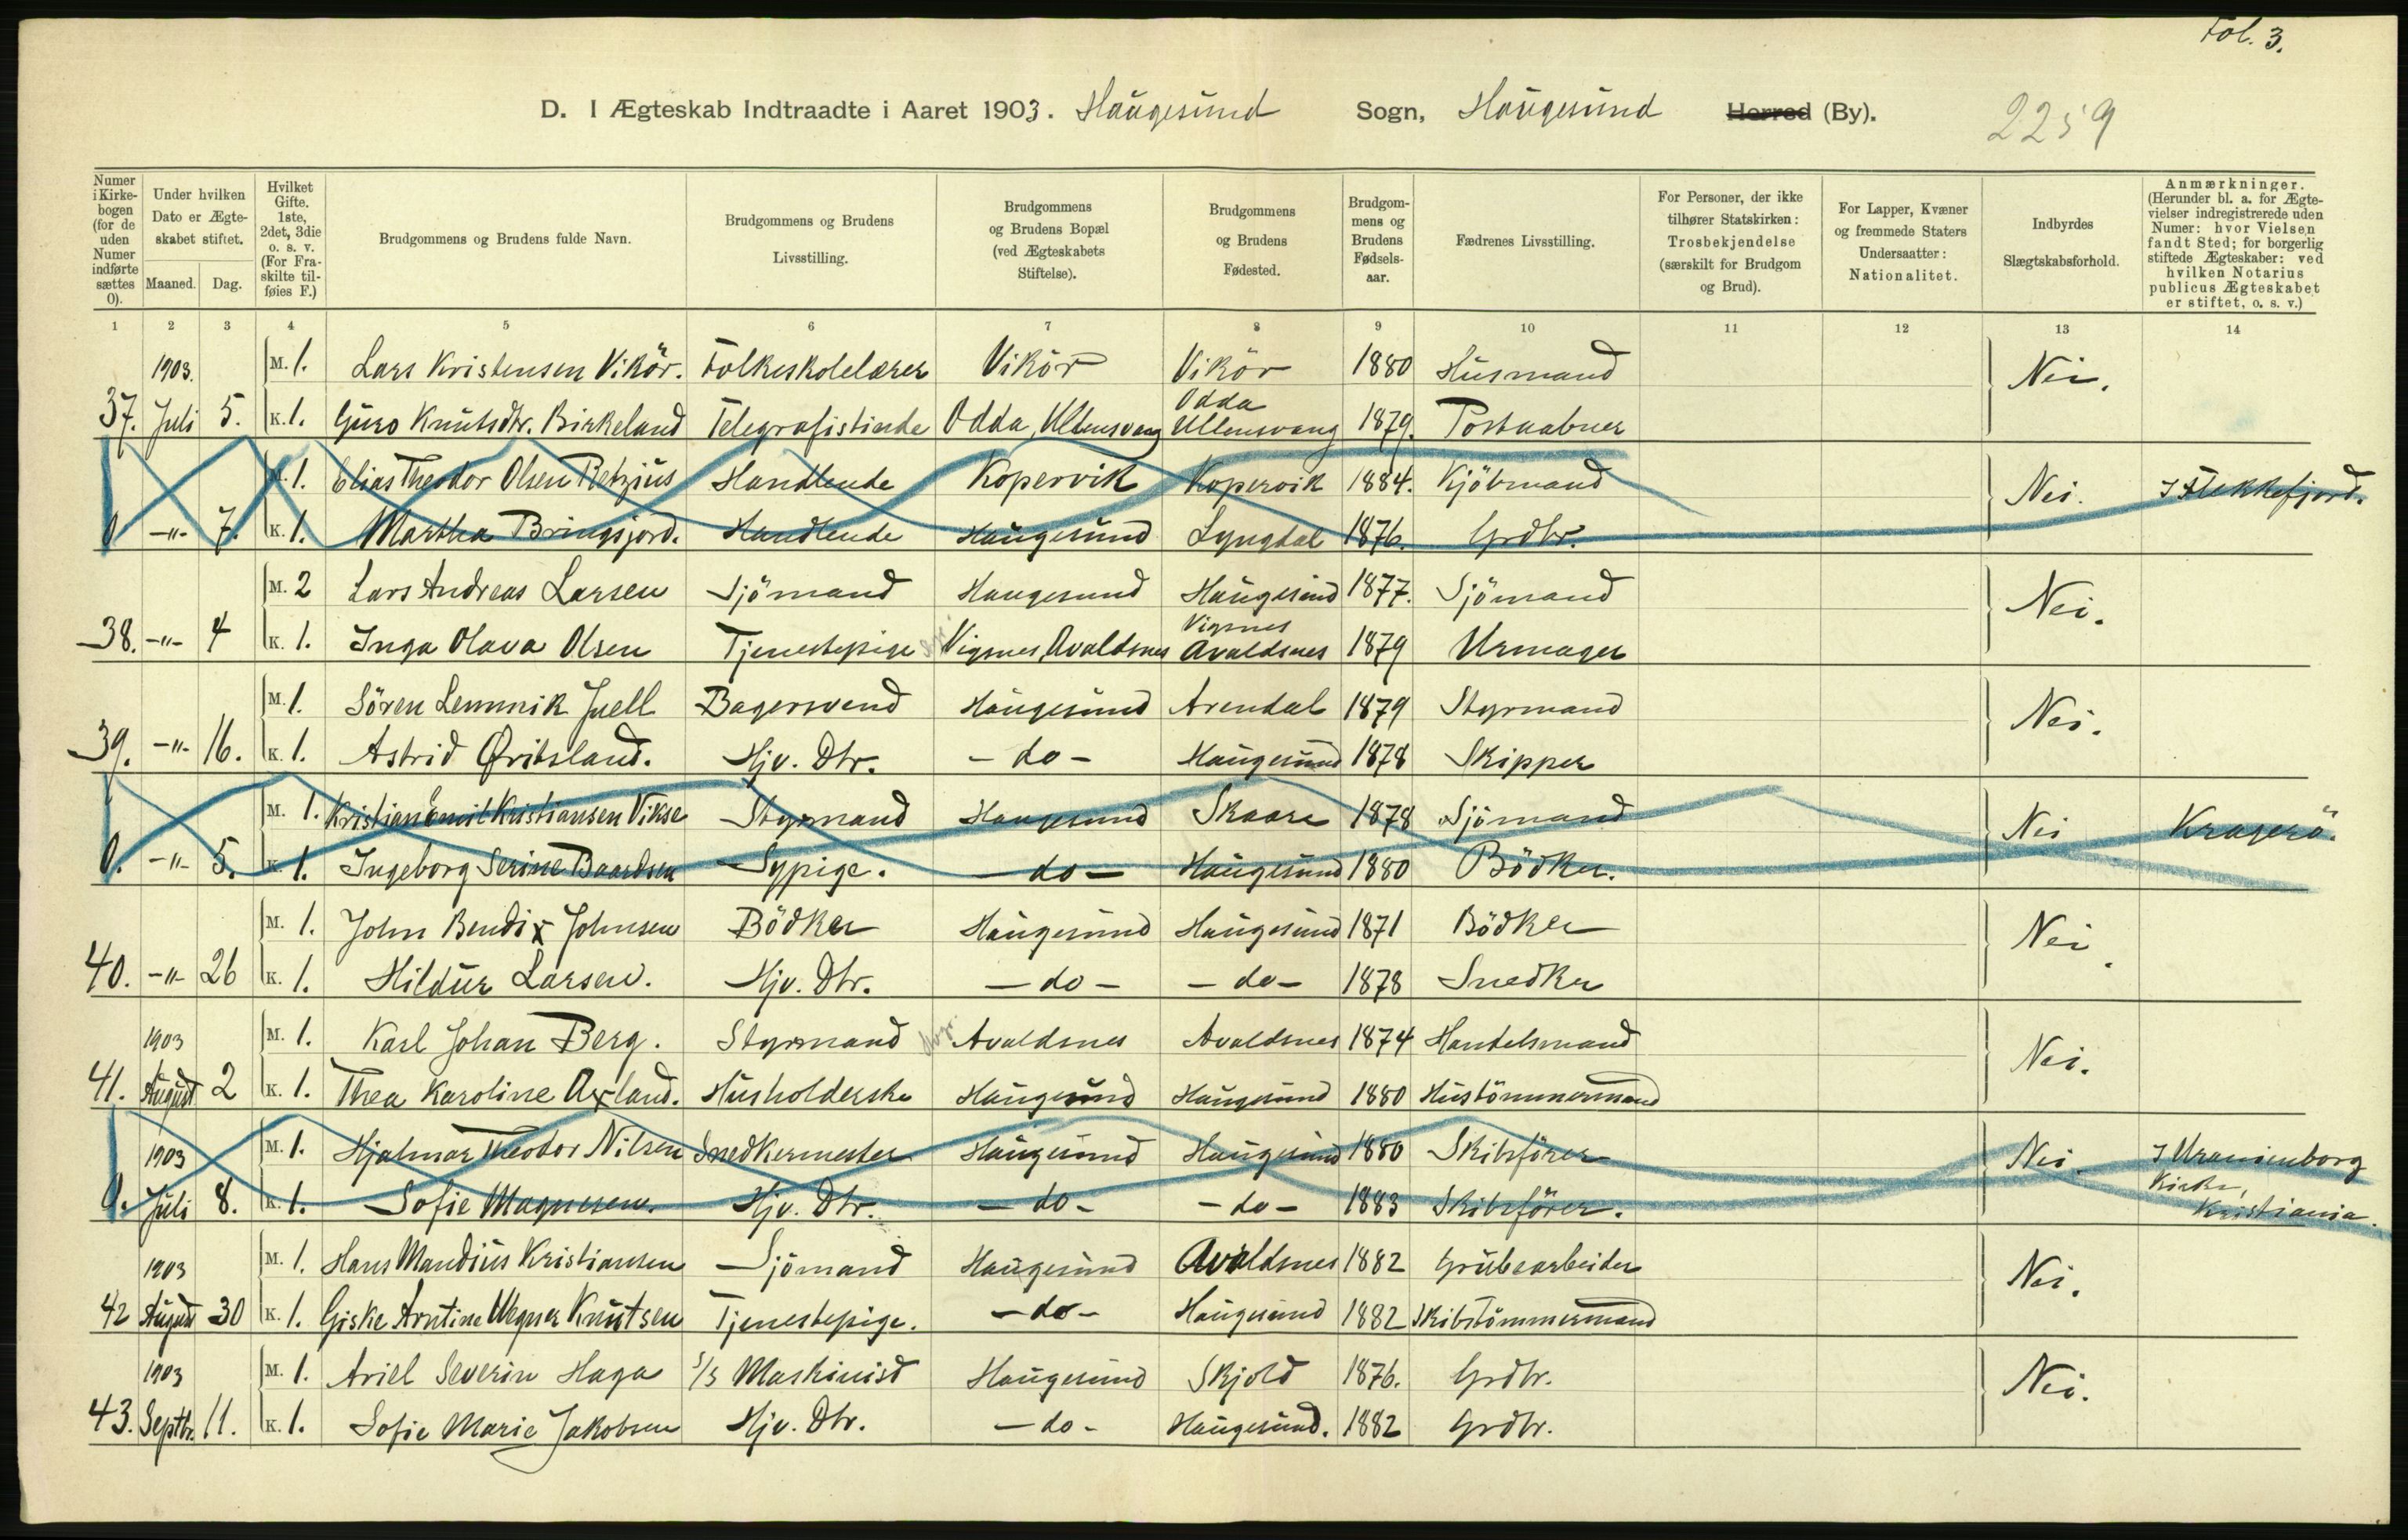 Fol. 3.
D. I Ægteskab Indtraadte i Aaret 1903. Haugesund Sogn, Haugesund Herred (By). 2259
Numer i Kirkebogen (for de uden Numer indførte sættes 0). Under hvilken Dato er Ægteskabet stiftet. Maaned. Dag. Hvilket Gifte. 1ste, 2det, 3die o. s. v. (For Fraskilte tilføies F.) Brudgommens og Brudens fulde Navn. Brudgommens og Brudens Livsstilling. Brudgommens og Brudens Bopæl (ved Ægteskabets Stiftelse). Brudgommens og Brudens Fødested. Brudgommens og Brudens Fødselsaar. Fædrenes Livsstilling. For Personer, der ikke tilhører Statskirken: Trosbekjendelse (særskilt for Brudgom og Brud). For Lapper, Kvæner og fremmede Staters Undersaatter: Nationalitet. Indbyrdes Slægtskabsforhold. Anmærkninger. (Herunder bl. a. for Ægtevielser indregistrerede uden Numer: hvor Vielsen fandt Sted; for borgerlig stiftede Ægteskaber: ved hvilken Notarius publicus Ægteskabet er stiftet, o. s. v.)
1 2 3 4 5 6 7 8 9 10 11 12 13 14
1903. M. 1. Lars Kristensen Vikör. Folkeskolelærer Vikör Vikör 1880 Husmand Nei.
37. Juli 5. K. 1. Guro Knutsdtr. Birkeland Telegrafistinde Odda, Ullensvang Odda Ullensvang 1879. Postaabner
M. 1. Elias Theodor Olsen Retzius Handlende Kopervik Kopervik 1884. Kjöbmand Nei. I Flekkefjord.
0 -"- 7. K. 1. Martha Bringsjord. Handlende Haugesund Lyngdal 1876. Grdbr.
M. 2 Lars Andreas Larsen Sjömand Haugesund Haugesund 1877. Sjömand Nei.
38. -"- 4 K. 1. Inga Olava Olsen Tjenestepige Vigsnes, Avaldsnes Vigsnes Avaldsnes 1879 Urmager
M. 1. Sören Lemmik Juell Bagersvend Haugesund Arendal 1879 Styrmand Nei.
39. -"- 16. K. 1. Astrid Øritsland. Hjv. Dtr. - do - Haugesund 1878 Skipper
M. 1. Kristian Emil Kristiansen Vikse Styrmand Haugesund Skaare 1878 Sjömand Nei Kragerö.
0. -"- 5. K. 1. Ingeborg Serine Baardsen Sypige. - do - Haugesund 1880 Bödker.
M. 1. John Bendix Johnsen Bödker Haugesund Haugesund 1871 Bödker Nei.
40. -"- 26 K. 1. Hildur Larsen. Hjv. Dtr. - do - - do - 1878 Snedker
1903 M. 1. Karl Johan Berg. Styrmand Avaldsnes Avaldsnes 1874 Handelsmand Nei.
41. August 2 K. 1. Thea Karoline Axland. Husholderske Haugesund Haugesund 1880 Hustömmermand
1903 M. 1. Hjalmar Theodor Nilsen Snedkermester Haugesund Haugesund 1880 Skibsförer Nei. I Uranienborg
0. Juli 8. K. 1. Sofie Magnesen. Hjv. Dtr. - do - - do - 1883 Skibsförer. Kirke, Kristiania.
1903 M. 1. Hans Mandius Kristiansen Sjömand Haugesund Avaldsnes 1882 Grubearbeider Nei.
42 August 30 K. 1. Giske Arntine Wegner Knutsen Tjenestepige. - do - Haugesund 1882 Skibstömmermand
1903 M. 1. Ariel Severin Haga S/S Maskinist Haugesund Skjold 1876. Grdbr. Nei.
43. Septbr. 11. K. 1. Sofie Marie Jakobsen Hjv. Dtr. - do - Haugesund. 1882 Grdbr.